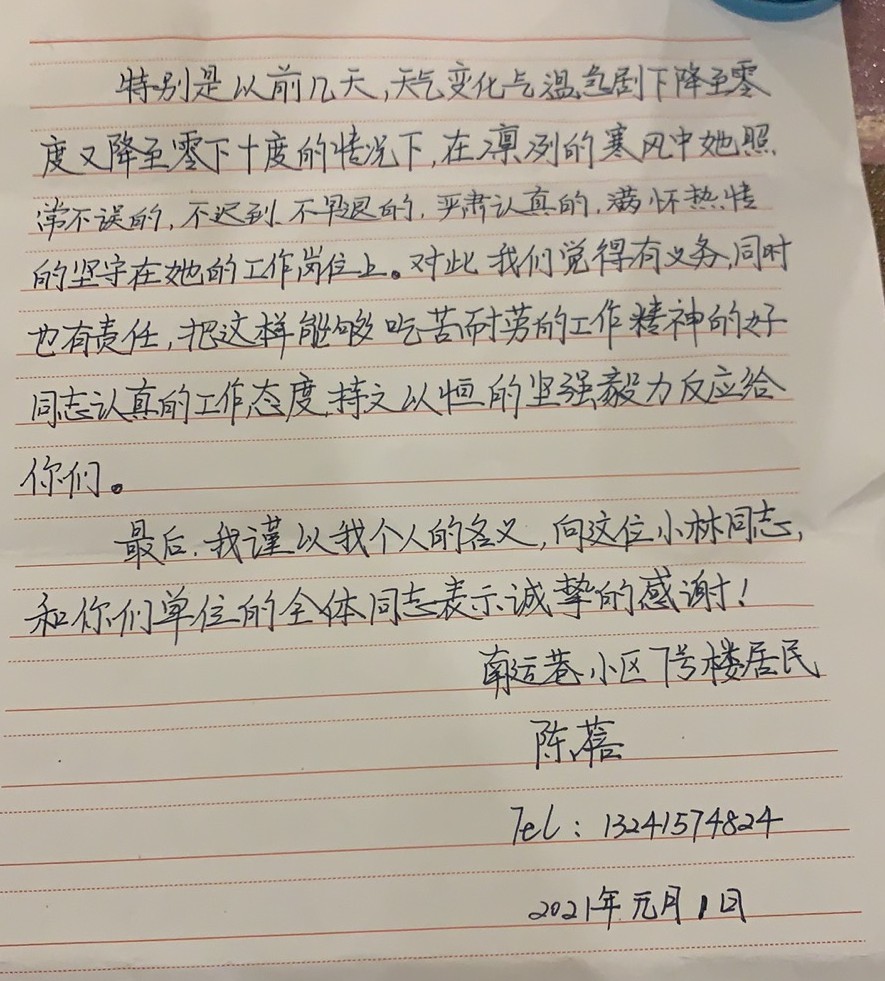 特别是以前几天,天气变化气温急剧下降至零
度又降至零下十度的情况下,在凛冽的寒风中她照
常不误的,不迟到、不早退的,严肃认真的,满怀热情
的坚守在她的工作岗位上。对此我们觉得有义务,同时
也有责任,把这样能够吃苦而耐劳的工作精神的好
同志认真的工作态度,持之以恒的坚强毅力反应给
你们。
最后,我谨以我个人的名义,向这位小林同志,
和你们单位的全体同志表示诚挚的感谢!
南运巷小区7号楼居民
陈
Tel:13241574824
2021年元月1日